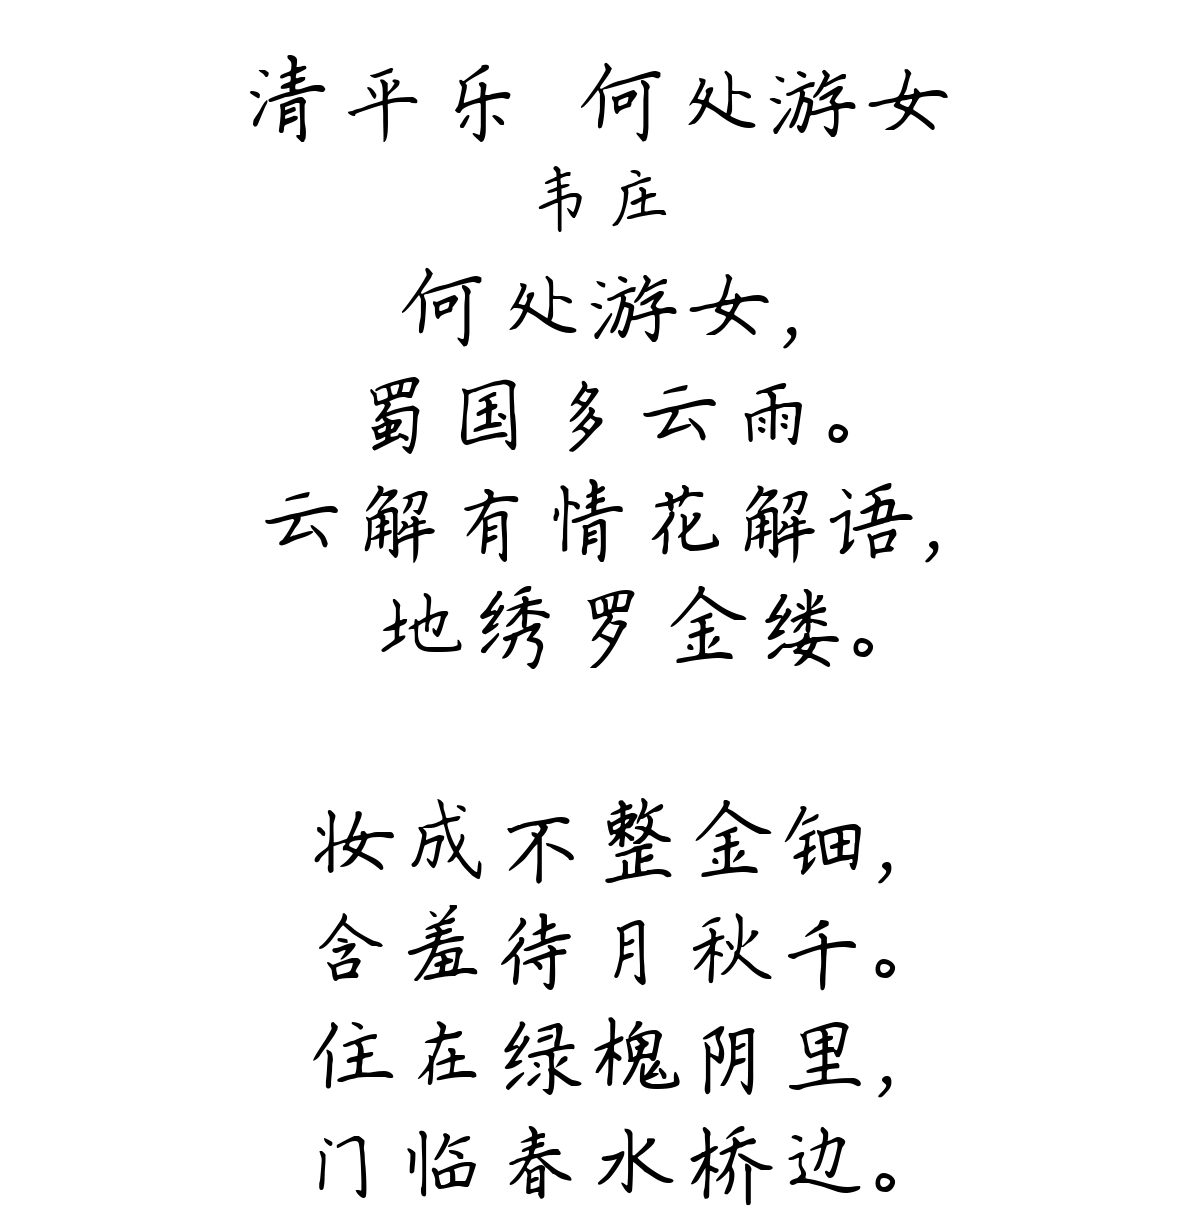 清平乐 何处游女
韦庄
何处游女,
蜀国多云雨。
云解有情花解语,
地绣罗金缕。
妆成不整金钿,
含羞待月秋千。
住在绿槐阴里,
门临春水桥边。